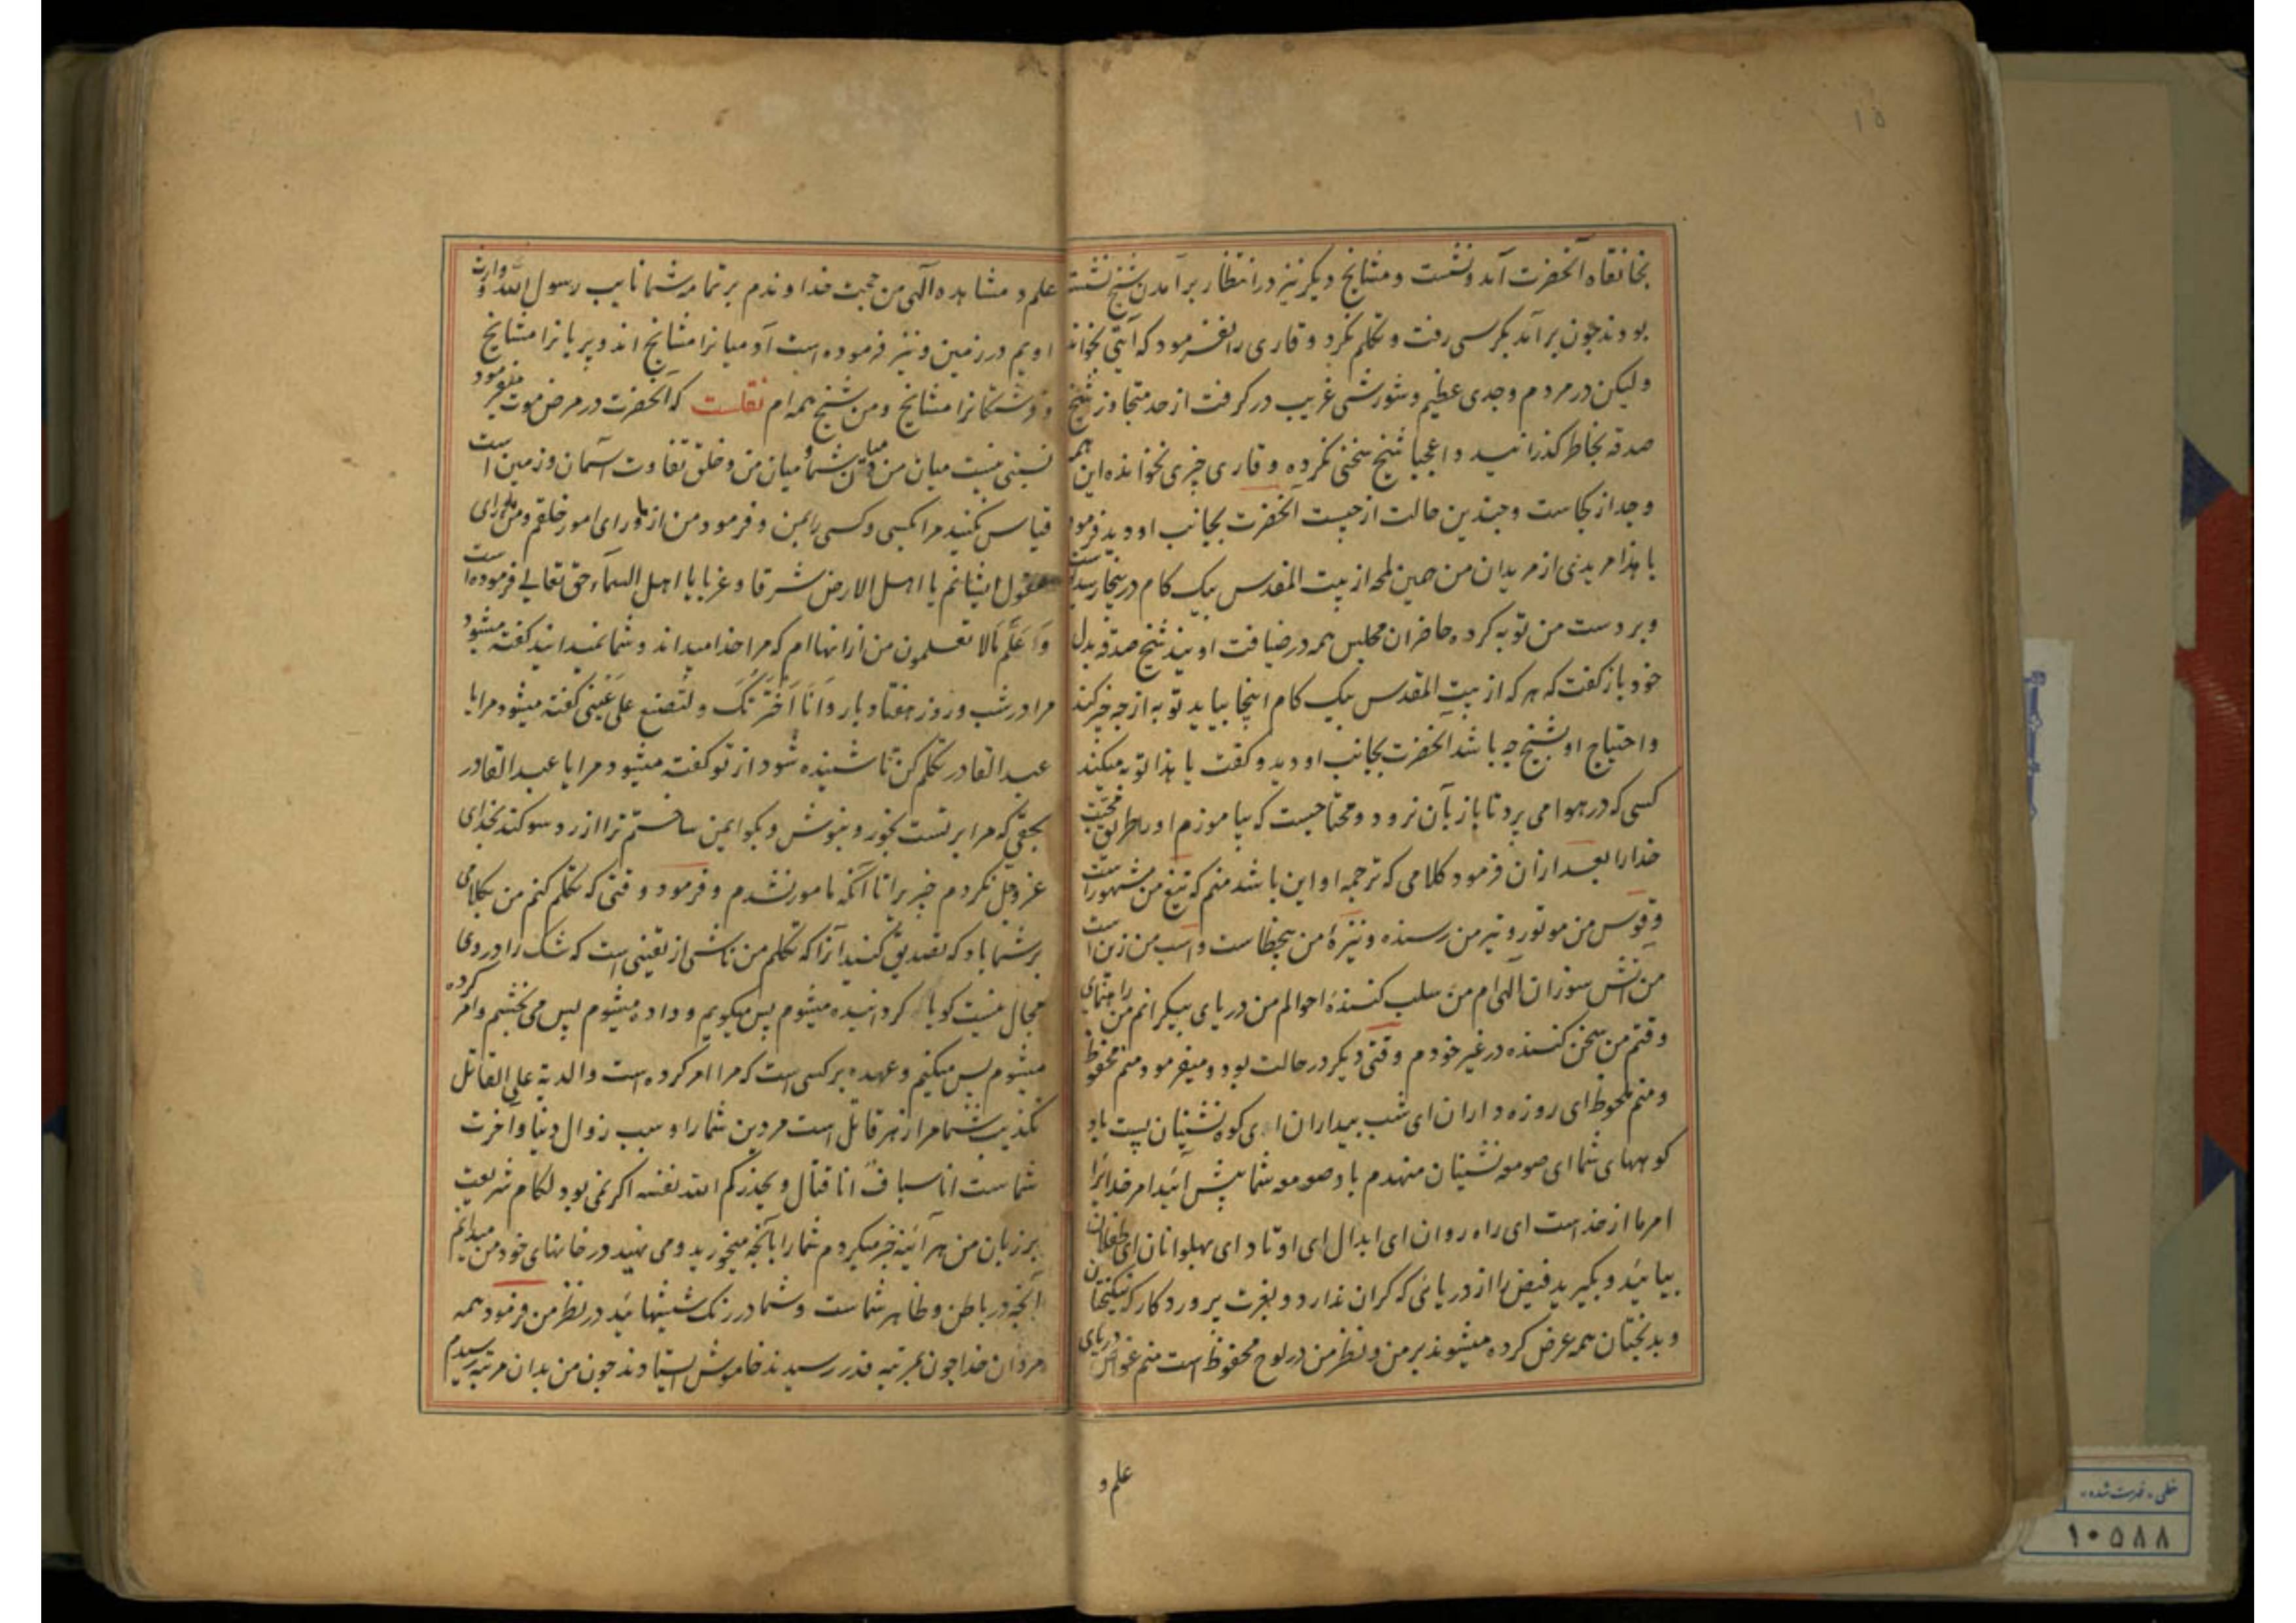 ۱۵
بخانقاه آنحضرت آمد و نشست و مشایخ دیگر نیز در انتظار برآمدن شیخ نشسته
بودند چون برآمد بکرسی رفت و تکلم نکرد و قاری را نفرمود که آیتی بخواند
ولیکن در مردم وجدی عظیم و شورشی غریب در گرفت از حد متجاوز شیخ
صدقه بخاطر گذرانید و اعجبا شیخ سخنی نکرده و قاری چیزی نخوانده این همه
وجد از کجاست و چندین حالت از چیست آنحضرت بجانب او دید فرمود
یا هذا مریدی از مریدان من همین لمحه از بیت المقدس بیک کام در ینجا رسیده است
و بر دست من توبه کرده حاضران مجلس همه در ضیافت اویند شیخ صدقه بدل
خود باز گفت که هر که از بیت المقدس بیک کام اینجا بیاید توبه از چه چیز کند
و احتیاج او بشیخ چه باشد آنحضرت بجانب او دید و گفت یا هذا توبه میکند
کسی که در هوا می پرد تا باز بآن نرود و محتاجست که بیاموزم او را طریق محبت
خدا را بعد ازان فرمود کلامی که ترجمه او این باشد منم که تیغ من مشهور است
و قوس من موتور و تیر من رسنده و نیزهٔ من بیخطاست و اسب من زین است
من آتش سوزان الهی ام من سلب کنندهٔ احوالم من دریای بیکرانم من راهنمای
وقتم من سخن کننده در غیر خودم وقتی دیگر در حالت بود و میفرمود منم محفوظ
و منم ملحوظ ای روزه داران ای شب بیداران ای کوه نشینان پست باد
کوههای شما ای صومعه نشینان منهدم باد صومعه شما پیش آئید امر خدایرا
امر ما از خداست ای راه روان ای ابدال ای اوتاد ای پهلوانان ای طفلان
بیائید و بگیرید فیض را از دریائی که کران ندارد و بعزت پروردگار که نیکبختان
و بدبختان همه عرض کرده میشوند بر من و نظر من در لوح محفوظ است منم غواص دریای
علم و
علم و مشاهده الهی من حجت خداوندم بر تمامه شما نایب رسول الله و وارث
اویم در زمین و نیز فرموده است آدمیانرا مشایخ اند و پریانرا مشایخ
و فرشتگانرا مشایخ و من شیخ همه ام نقلست که آنحضرت در مرض موت میفرمود
نسبتی نیست میان من و میان شما و میان من و خلق تفاوت آسمان و زمین است
قیاس نکنید مرا بکسی و کسی را بمن و فرمود من از ماورای امور خلقم و من ماورای
عقول ایشانم یا اهل الارض شرقا و غربا یا اهل السماء حق تعالی فرموده است
و اعلم ما لا تعلمون من ازانها ام که مرا خدا میداند و شما نمیدانید گفته میشود
مرا در شب و روز هفتاد بار و انا اخترتک و لتصنع علی عینی گفته میشود مرا یا
عبد القادر تکلم کن تا شنیده شود از تو گفته میشود مرا یا عبد القادر
بحقی که مرا بر تست بخور و بنوش و بگو ایمن ساختم ترا از رد سوگند بخدای
عز و جل نکردم چیزیرا تا آنکه مامور نشدم و فرمود وقتی که تکلم کنم من بکلامی
بر شما باد که تصدیق کنید آنرا که تکلم من ناشی از یقینی است که شک را در وی
مجال نیست گویا گردانیده میشوم پس میگویم و داده میشوم پس می بخشم و امر کرده
میشوم پس میکنم و عهده بر کسی است که مرا امر کرده است والدیة علی العاقل
تکذیب شما مرا زهر قاتل است مر دین شما را و سبب زوال دنیا و آخرت
شماست انا سیاف انا قتال و یحذرکم الله نفسه اگر نمی بود لگام شریعت
بر زبان من هر آئینه خبر میکردم شما را بآنچه میخورید و می نهید در خانهای خود من میدانم
آنچه در باطن و ظاهر شماست و شما در رنگ شیشهائید در نظر من فرمود همه
مردان خدا چون بمرتبه قدر رسیدند خاموش ایستادند چون من بدان مرتبه رسیدم
خطی - فهرست شده -
۱۰۵۸۸